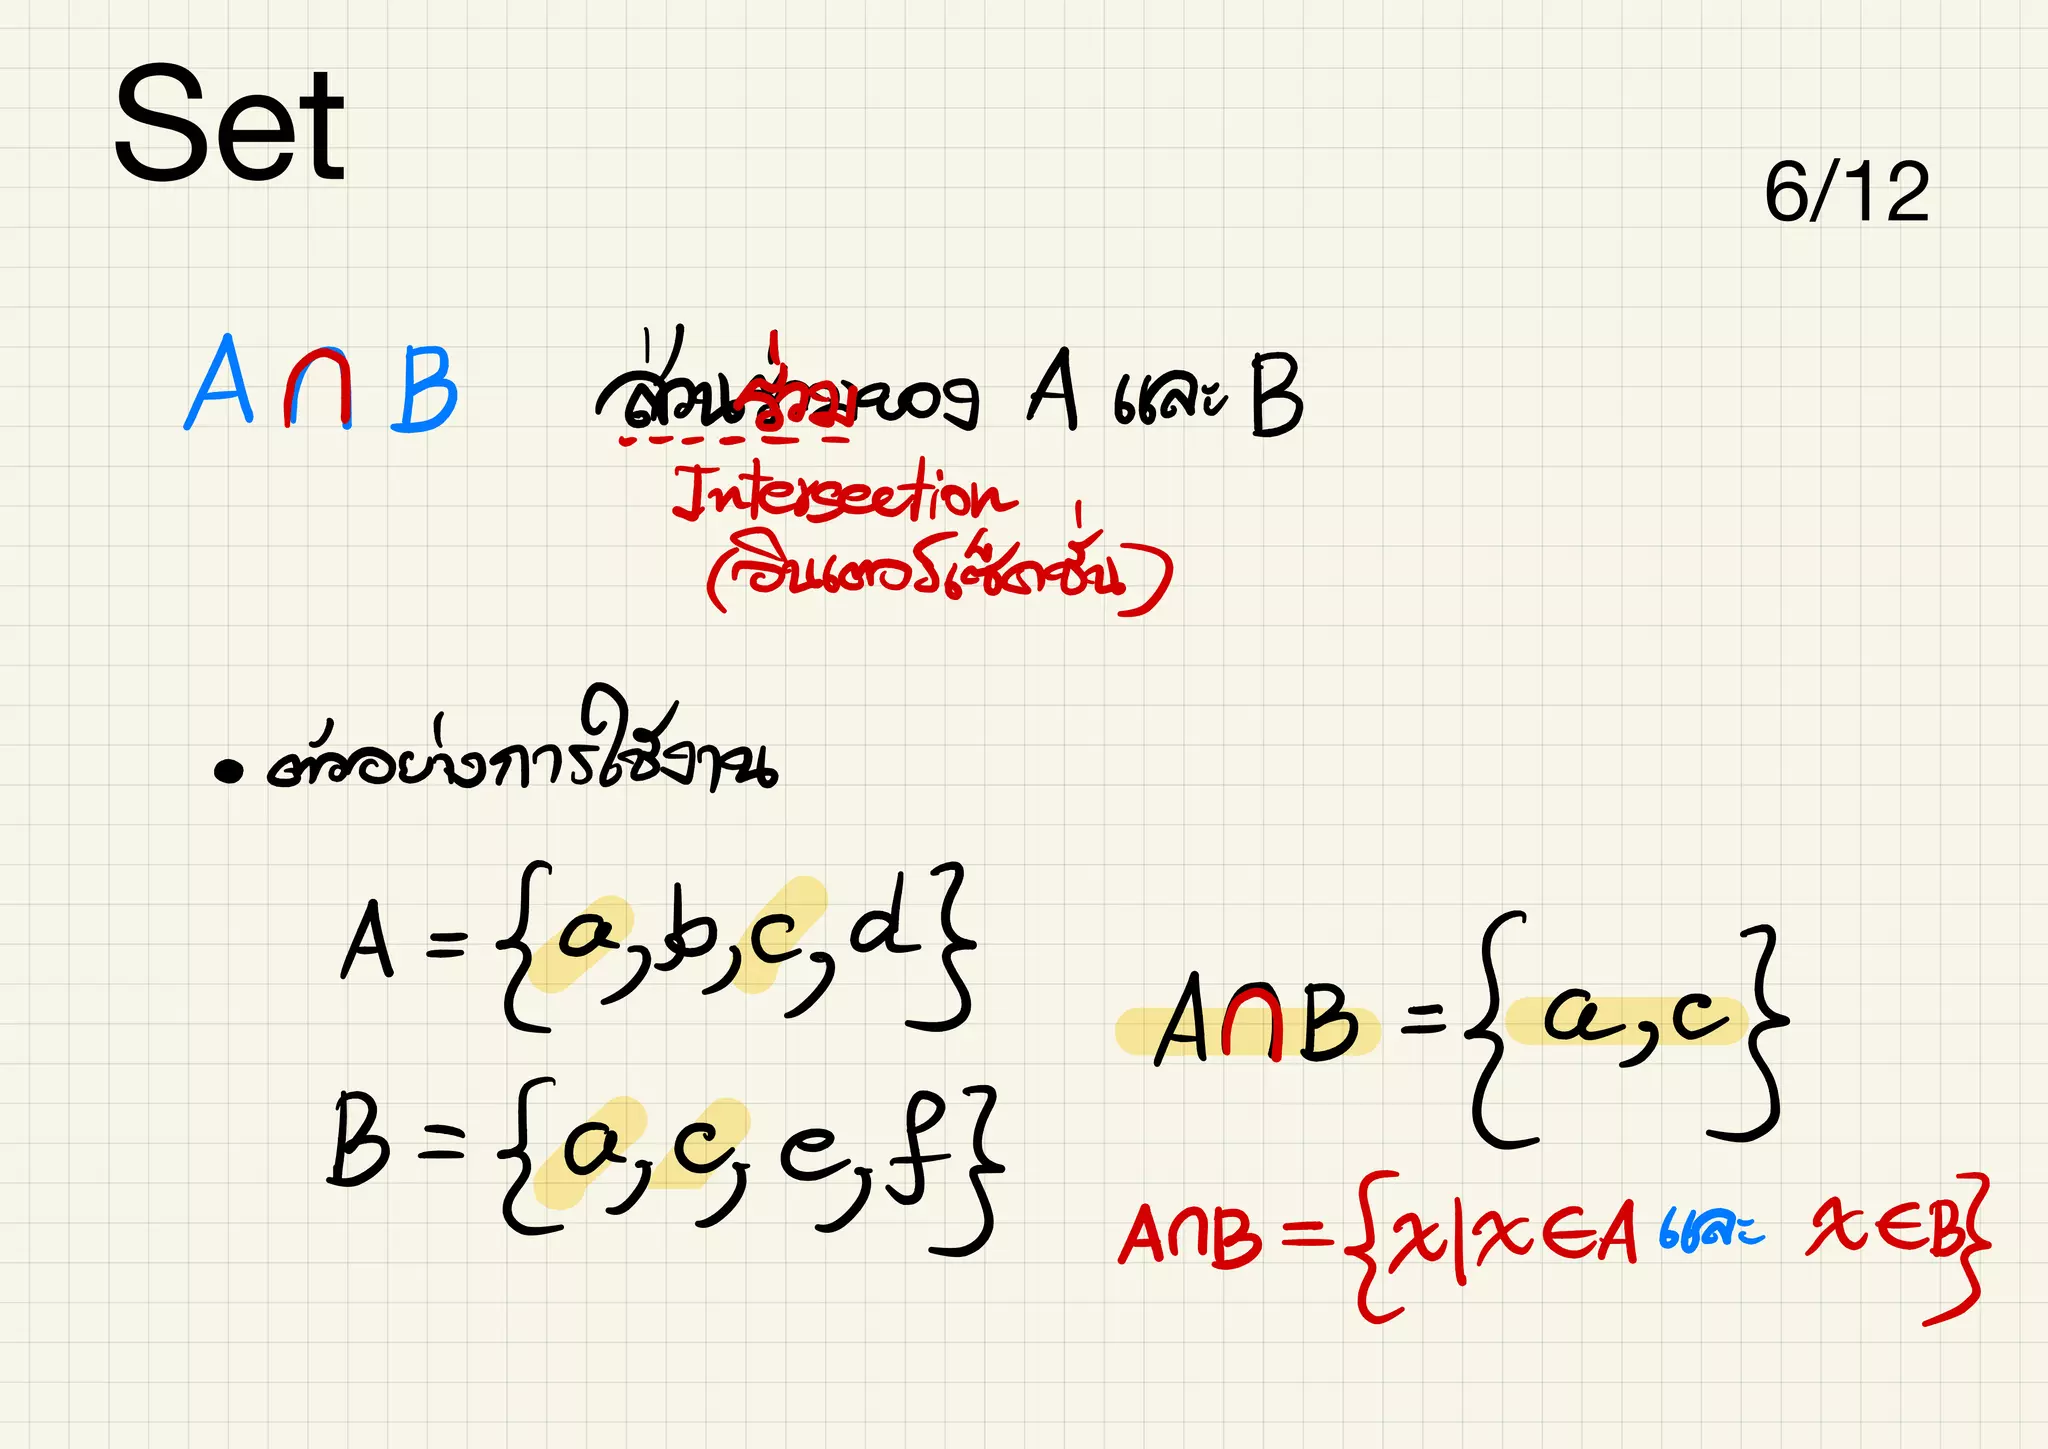 Set
6/12
A∩B ส่วนร่วมของ A และ B
Intersection
(อินเตอร์เซ็กชั่น)
• ตัวอย่างการใช้งาน
A = {a,b,c,d}
A∩B = {a,c}
B = {a,c,e,f}
A∩B = {x|x∈A และ x∈B}